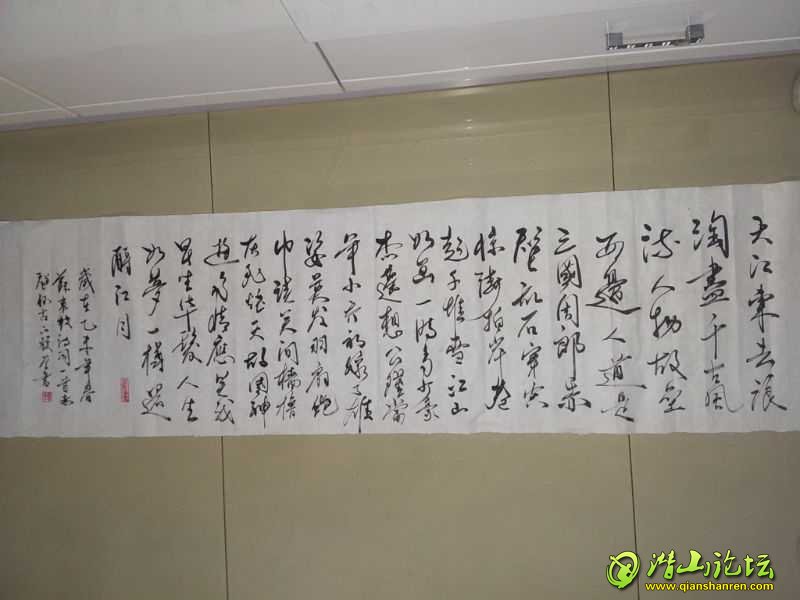 大江東去浪
淘盡千古風
流人物故壘
西邊人道是
三國周郎赤
壁亂石穿空
惊濤拍岸卷
起千堆雪江山
如画一時多少豪
杰遥想公瑾當
年小喬初嫁了雄
姿英发羽扇纶
巾谈笑间檣櫓
灰飞烟灭故國神
遊多情應笑我
早生华髮人生
如夢一樽還
酹江月
歲在乙未年春
蘇東坡詞一首
書
潜山论坛
www.qianshanren.com